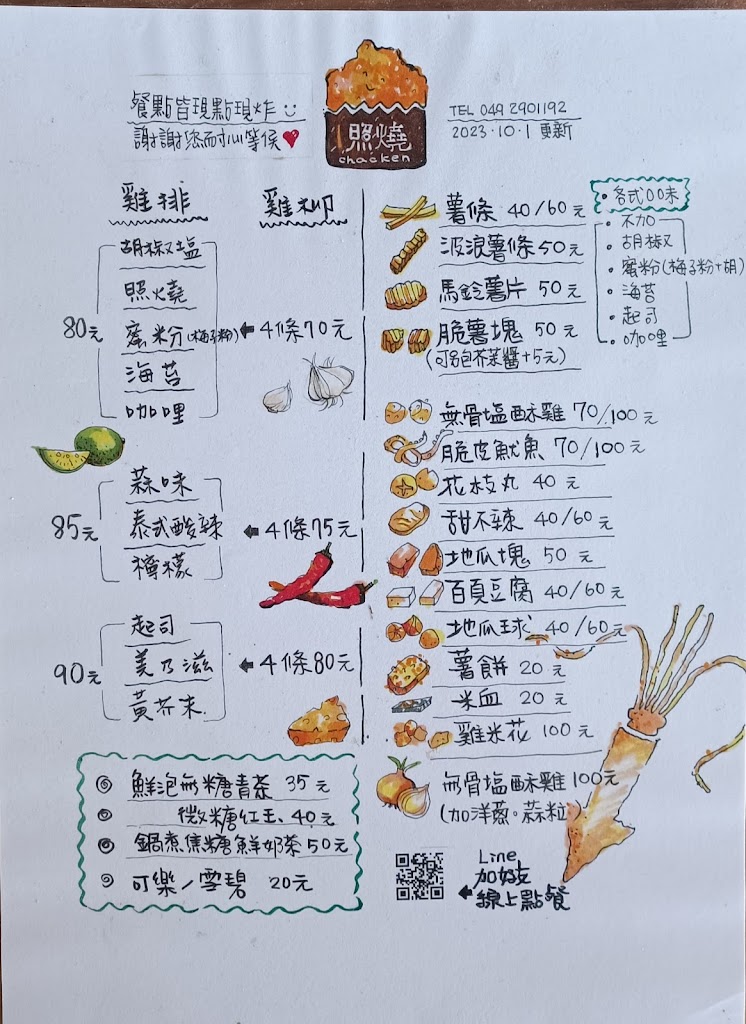 餐點皆現點現炸
謝謝您耐心等侯
照燒
chacken
TEL 049 2901192
2023.10.1 更新
雞排
雞柳
80元
胡椒塩
照燒
蜜粉(梅子粉)
海苔
咖哩
4條70元
85元
蒜味
泰式酸辣
檸檬
4條75元
90元
起司
美乃滋
黃芥末
4條80元
鮮泡無糖青茶 35元
微糖紅玉 40元
鍋煮焦糖鮮奶茶 50元
可樂/雪碧 20元
薯條 40/60元
波浪薯條 50元
馬鈴薯片 50元
脆薯塊 50元
(可另包芥茉醬+5元)
各式口味
不加
胡椒
蜜粉(梅子粉+胡)
海苔
起司
咖哩
無骨塩酥雞 70/100元
脆皮魷魚 70/100元
花枝丸 40元
甜不辣 40/60元
地瓜塊 50元
百頁豆腐 40/60元
地瓜球 40/60元
薯餅 20元
米血 20元
雞米花 100元
無骨塩酥雞 100元
(加洋蔥。蒜粒)
Line
加好友
線上點餐